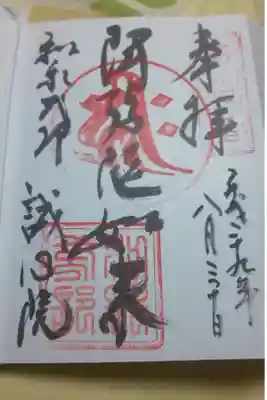 奉拝
平成二十九年
八月二十日
阿弥陀如来
和泉式部
誠心院